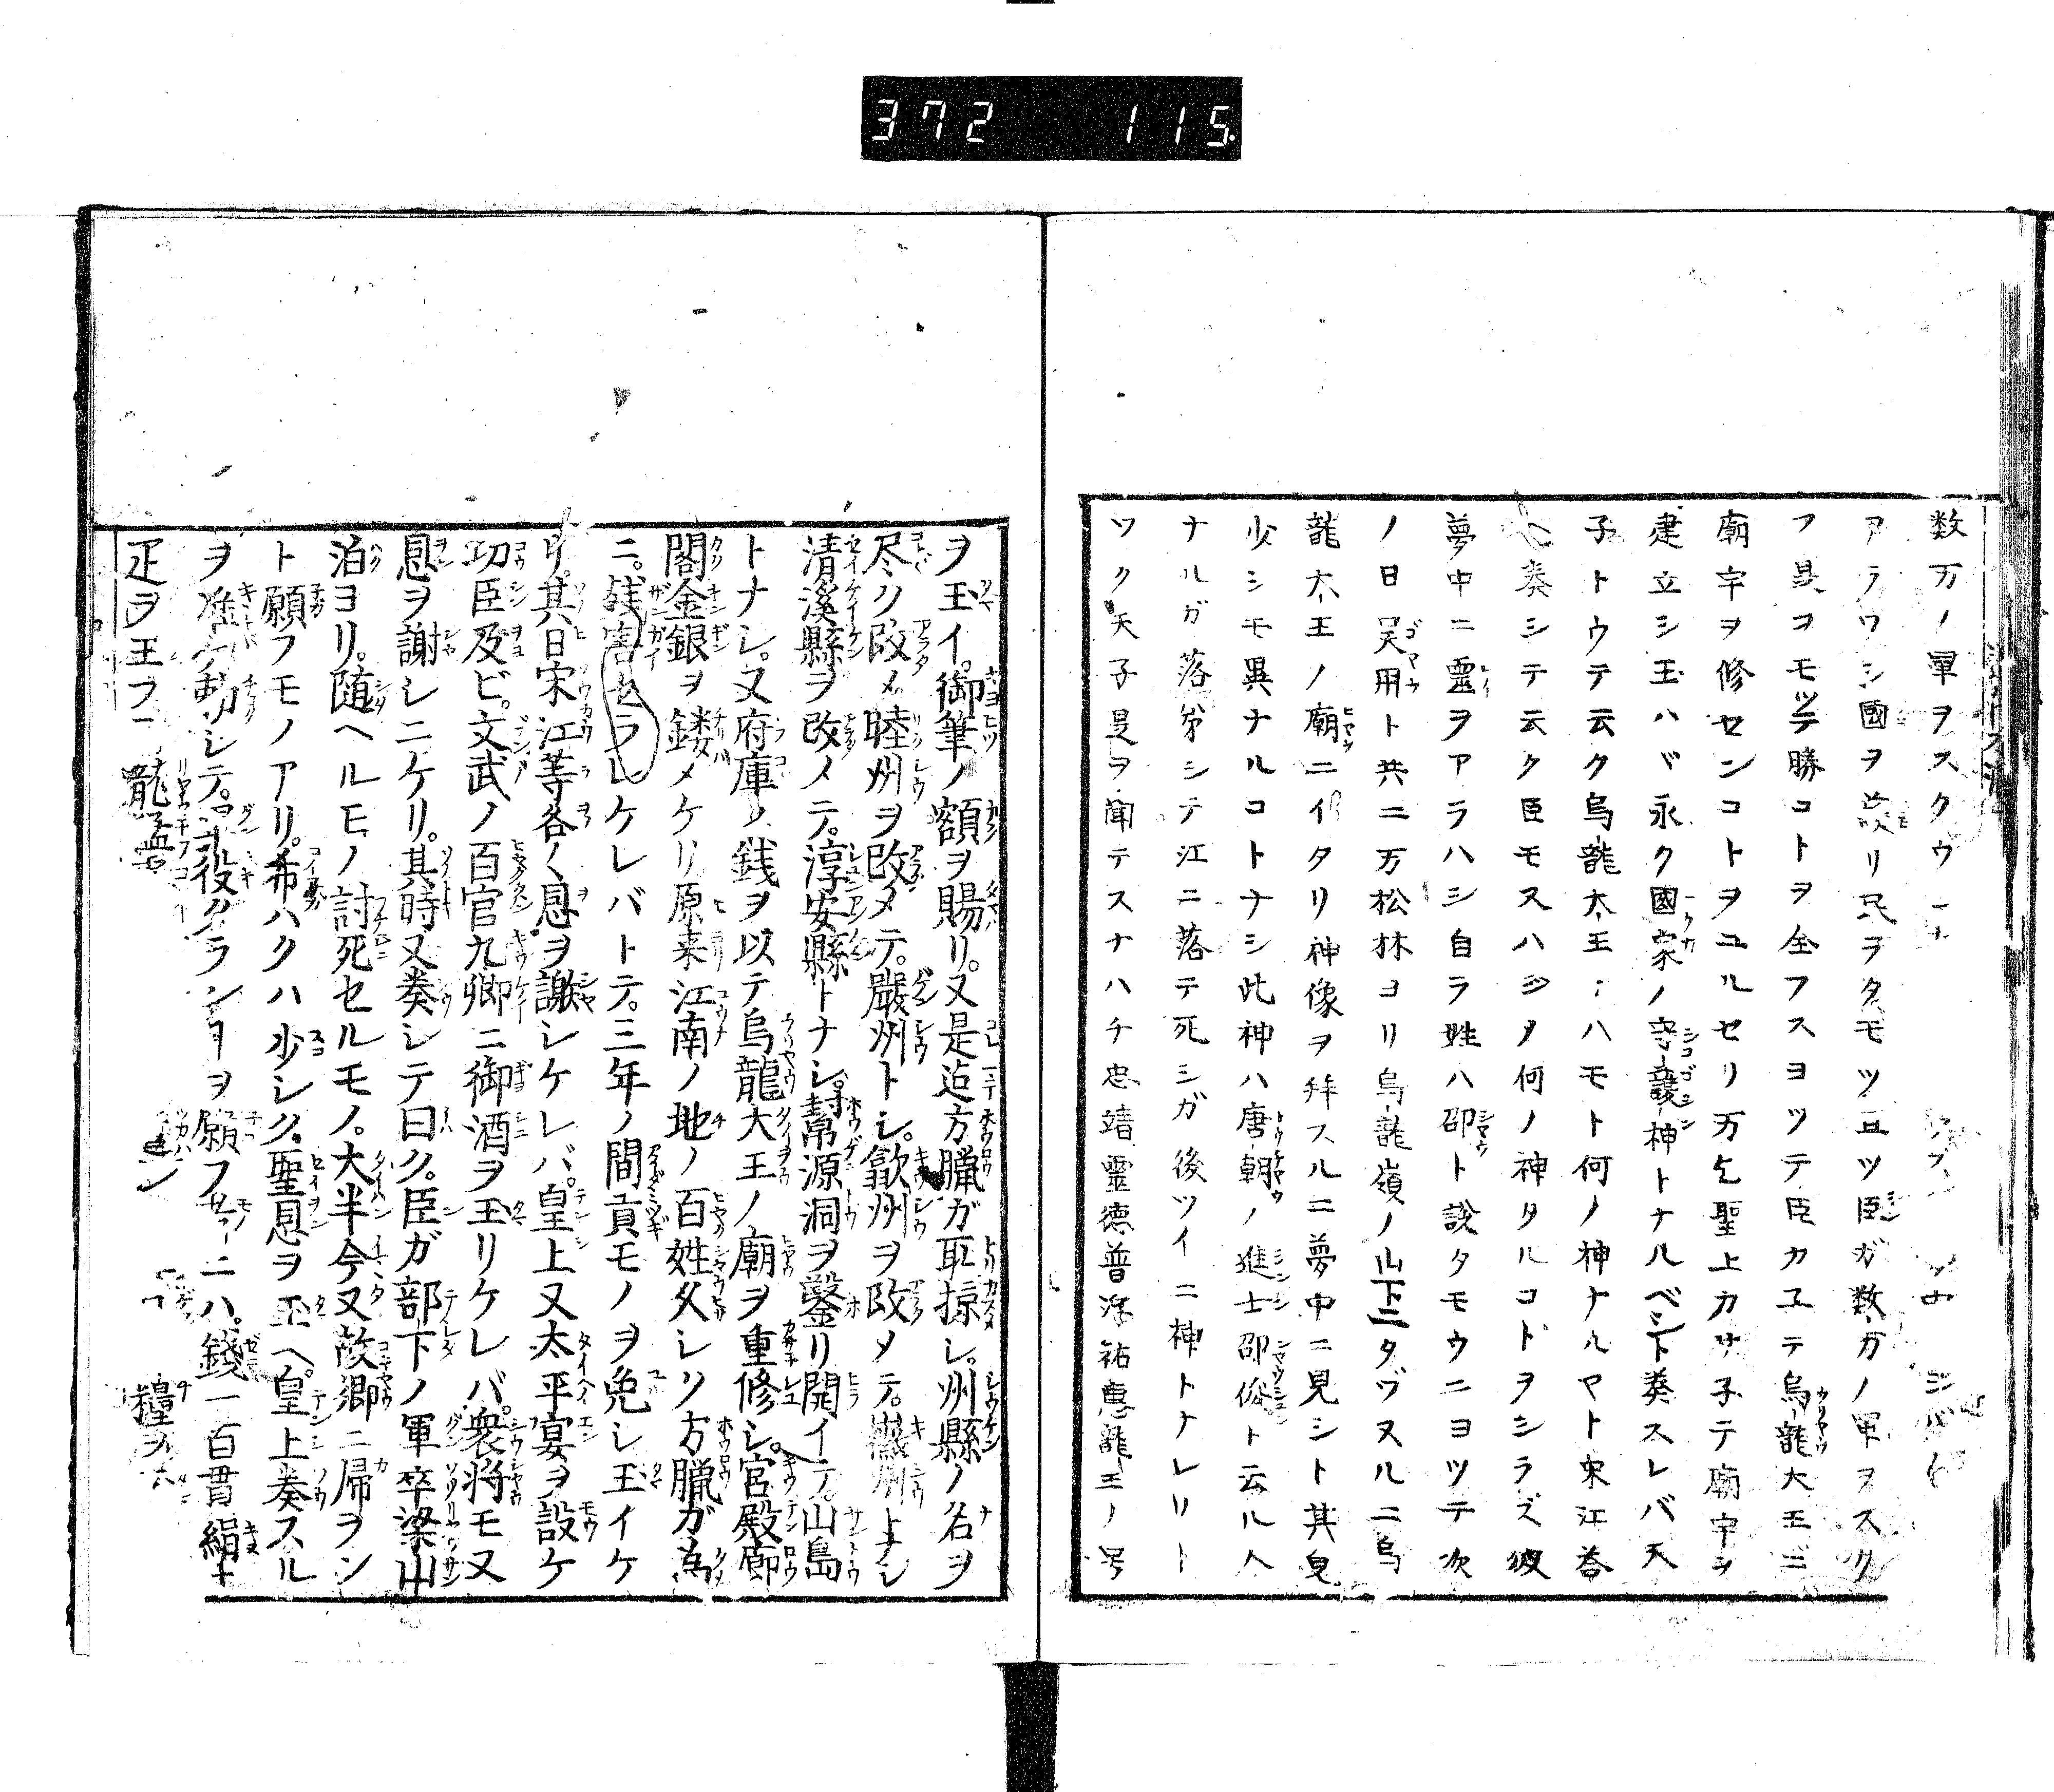 372 115.
数万ノ軍ヲスクウ
アラワシ國ヲ護リ民ヲタモツ且ツ臣ガ数万ノ軍ヲスク
フ是コモツテ勝コトヲ全フスヨツテ臣カ子テ烏龍大王ニ
廟宇ヲ修センコトヲユルセリ万乞聖上カサ子テ廟宇ヲ
建立シ玉ハヾ永ク國家ノ守護神トナルベシト奏スレバ天
子トウテ云ク烏龍大王ハモト何ノ神ナルヤト宋江荅
奏シテ云ク臣モスハジメ何ノ神タルコトヲシラズ彼
夢中ニ靈ヲアラハシ自ラ姓ハ邵ト說タモウニヨツテ次
ノ日吴用ト共ニ万松林ヨリ烏龍嶺ノ山下ニタヅヌルニ烏
龍大王ノ廟ニイタリ神像ヲ拜スルニ夢中ニ見シト其皃
少シモ異ナルコトナシ此神ハ唐朝ノ進士邵俊ト云ル人
ナルガ落第シテ江ニ落テ死シガ後ツイニ神トナレリト
ツク天子是ヲ聞テスナハチ忠靖靈德普濟祐惠龍王ノ号
ヲ玉イ。御筆ノ額ヲ賜リ。又是迠方臘ガ耴掠シ。州縣ノ名ヲ
尽ク改メ睦州ヲ改メテ。嚴州トシ。歙州ヲ改メテ。徽州トナシ
清溪縣ヲ改メテ。淳安縣トナシ。幇源洞ヲ鑿リ開イテ。山島
トナシ。又府庫ノ銭ヲ以テ烏龍大王ノ廟ヲ重修シ。官殿廊
閣金銀ヲ鏤メケリ原来江南ノ地ノ百姓久シク方臘ガ為
ニ。残害セラレケレバトテ。三年ノ間貢モノヲ免シ玉イケ
リ。其日宋江等各〱恩ヲ謝シケレバ。皇上又太平宴ヲ設ケ
功臣及ビ。文武ノ百官九卿ニ御酒ヲ玉リケレバ。衆将モ又
恩ヲ謝シニケリ。其時又奏シテ曰ク。臣ガ部下ノ軍卒梁山
泊ヨリ。随ヘルモノ討死セルモノ。大半今又故郷ニ帰ヲン
ト願フモノアリ。希ハクハ少シク。聖恩ヲ玉ヘ。皇上奏スル
ヲ准ケ勅シテ。軍役タランヿヲ願フ者ニハ。錢一百貫絹十
疋ヲ玉フ 龍猛 糧ヲ